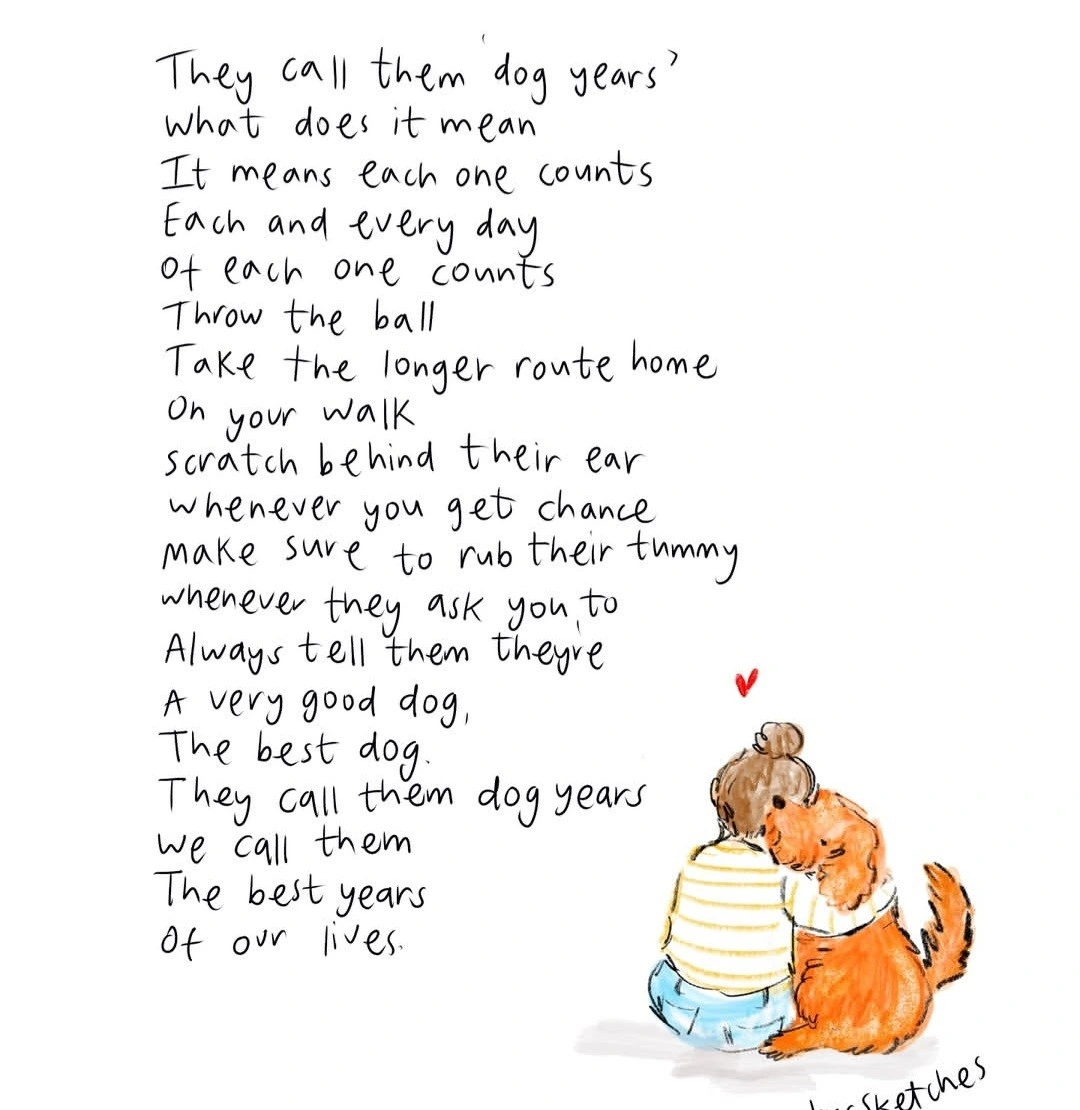 They call them 'dog years'
what does it mean
It means each one counts
Each and every day
Of each one counts
Throw the ball
Take the longer route home
On your walk
scratch behind their ear
whenever you get chance
make sure to rub their tummy
whenever they ask you to
Always tell them they're
A very good dog,
The best dog.
They call them dog years
we call them
The best years
Of our lives.
sketches